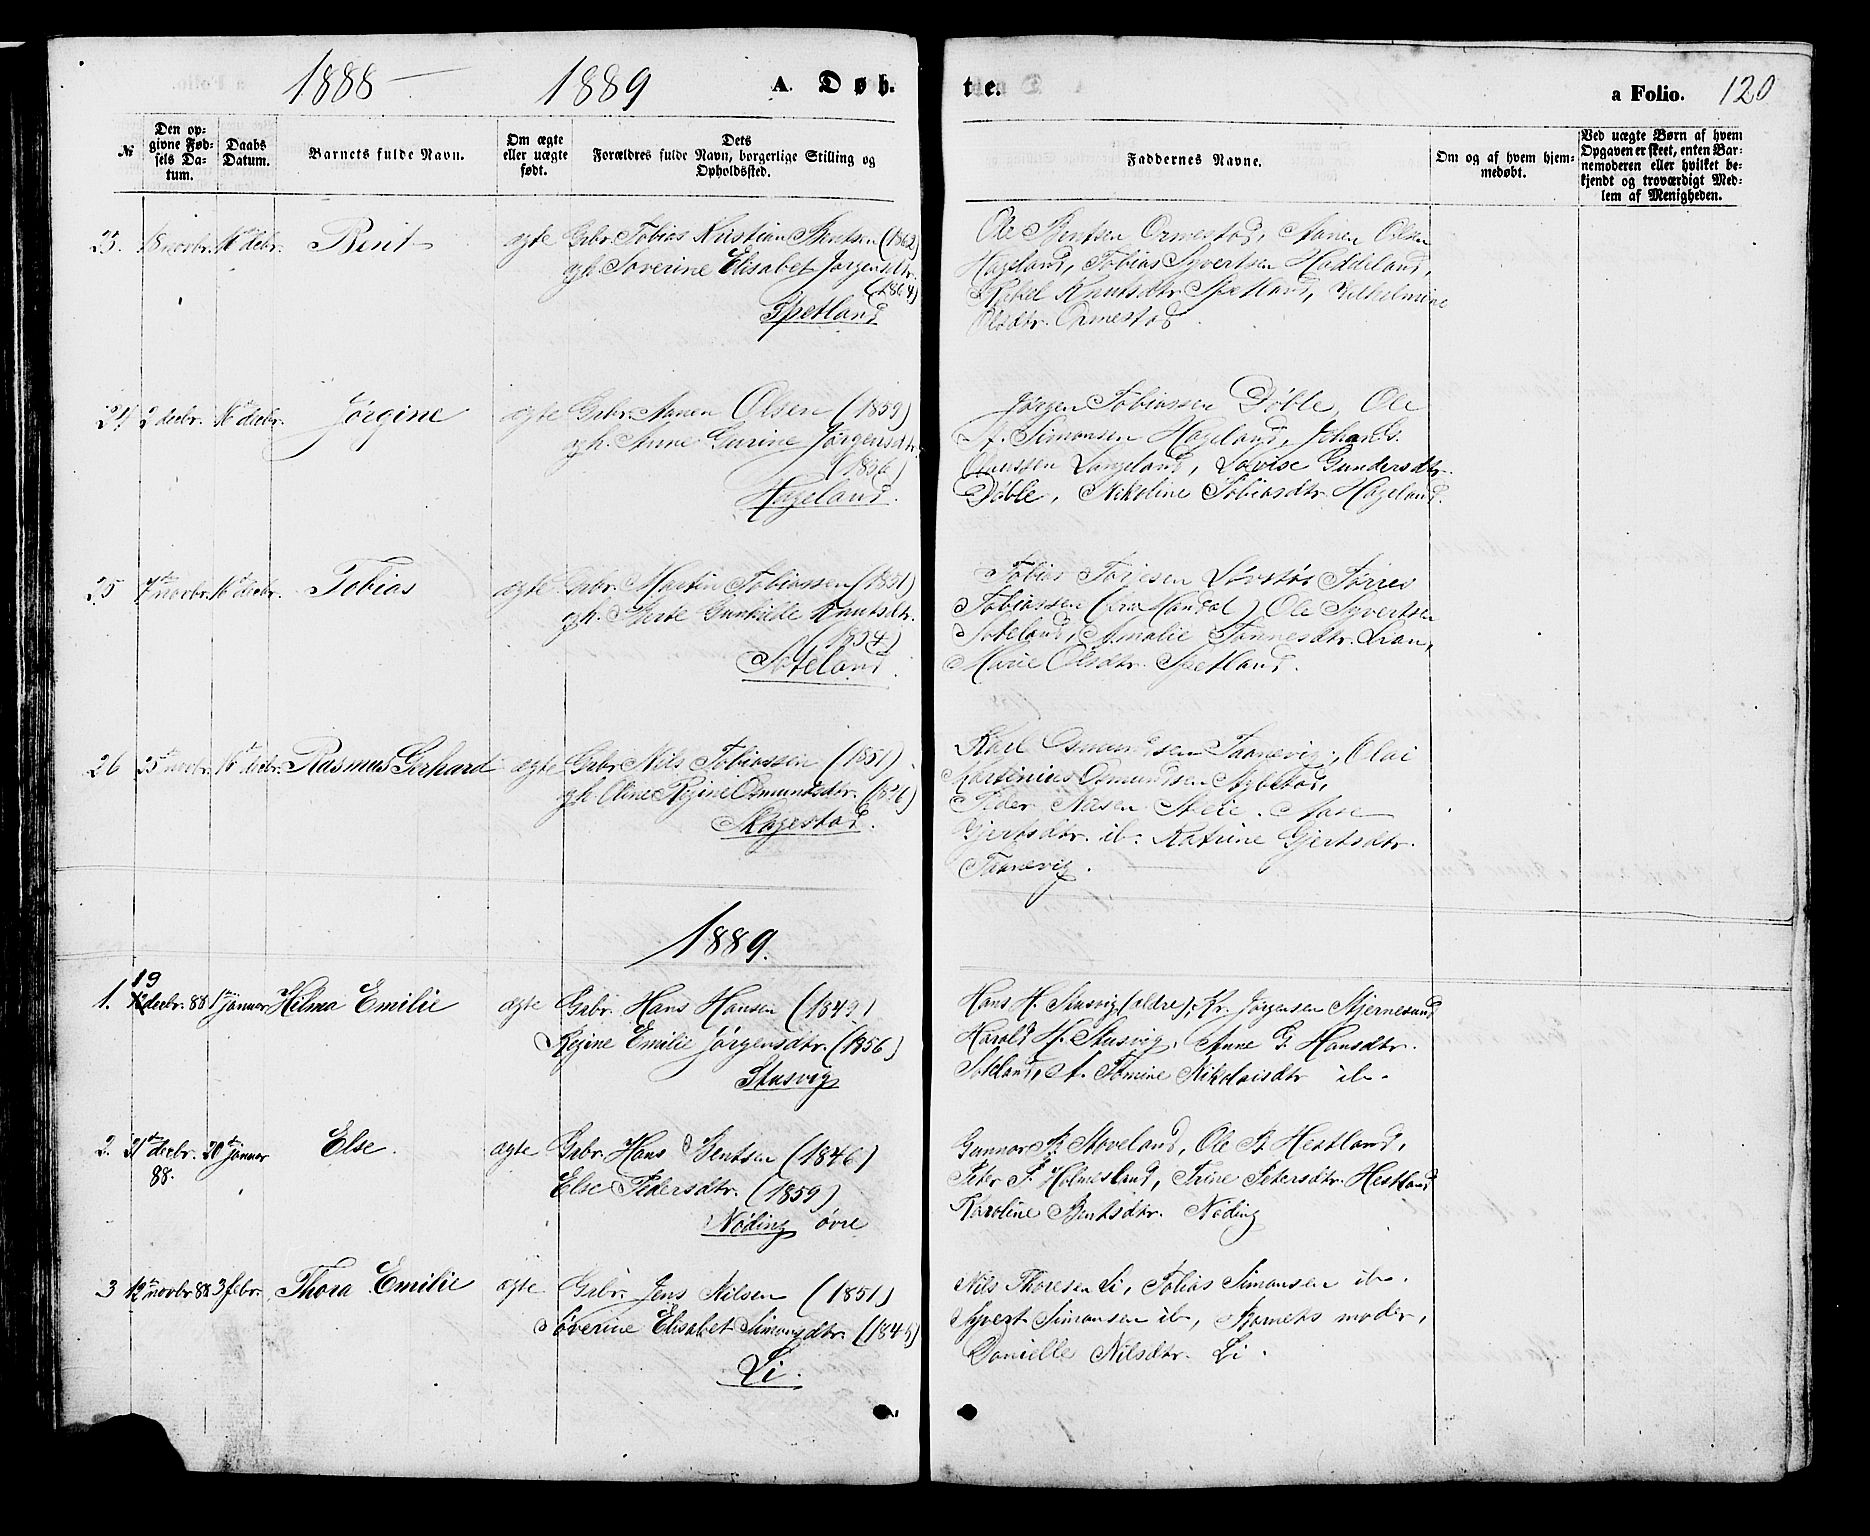 1888 — 1889 A. Døb.
te. a Folio. 120
№
Den op-
givne Fød-
sels Da-
tum.
Daabs
Datum.
Barnets fulde Navn.
Om ægte
eller uægte
født.
Dets
Forældres fulde Navn, borgerlige Stilling og
Opholdssted.
Faddernes Navne.
Om og af hvem hjem-
medøbt.
Ved uægte Børn af hvem
Opgaven er skeet, enten Bar-
nemoderen eller hvilket be-
kjendt og troværdigt Med-
lem af Menigheden.
23. novbr. 16 decbr. Berit ægte Grbr. Tobias Kristian Bentsen (1862)
gh. Severine Elisabet Jørgensdtr.
(1864)
Spetland
Ole Bentsen Ormestad, Aanen Olsen
Hageland, Tobias Syvertsen Haddeland,
Rakel Knutsdtr. Spetland, Vilhelmine
Olsdtr. Ormestad.
24 2 decbr. 16 decbr. Jørgine ægte Grbr. Aanen Olsen (1859)
gh. Anne Gurine Jørgensdtr.
Hageland.
Jørgen Tobiassen Døble, Ole
A. Simonsen Hageland, Johan G.
Langeland, Lovise Gundersdtr.
Døble, Nikoline Tobiasdtr. Hageland.
25 7de novbr. 16 decbr. Tobias ægte Grbr. Martin Tobiassen
gh. Gunhilde Knutsdtr.
Soteland.
Tobias
Tobiassen (fra Mandal) Ole Syvertsen
Soteland, Amalie Tønnesdtr.
Marie Olsdtr. Spetland.
26 25 novbr. 16 decbr. Rasmus Gerhard ægte Grbr. Nils Tobiassen (1851)
gh. Oline Regine Osmundsdtr.
Skagestad.
Karl Osmundsen Taanevig, Olai
Martinius Osmundsen
Peder Nilsen Aase
Gjertsdtr. ib. Katrine Gjertsdtr.
Taanevig.
1889.
1. 19 decbr. 88 1 januar Hilma Emilie ægte Grbr. Hans Hansen (1849)
Regine Emilie Jørgensdtr. (1856)
Stusvig
Hans H. Stusvig (ældre), Kr. Jørgensen Stjernesund
Harald H. Stusvig, Anne G. Hansdtr.
Soteland, A. Tomine Nikolaisdtr ib.
2. 21 decbr. 20 januar Else. ægte Grbr. Hans Bentsen (1846)
88.
Else Pedersdtr. (1859)
Nøding øvre
Gunnar B. Stoveland, Ole B. Hestland,
Peter P. Holmesland, Trine Petersdtr. Hestland
Karoline Bentsdtr. Nøding
3 12 novbr 88 3 febr. Thora Emilie ægte Grbr. Jens Nilsen (1851)
Søverine Elisabet Simonsdtr.
Li.
Nils Thoresen Li, Tobias Simonsen ib.
Syvert Simonsen ib, Barnets moder,
Danielle Nilsdtr. Li.